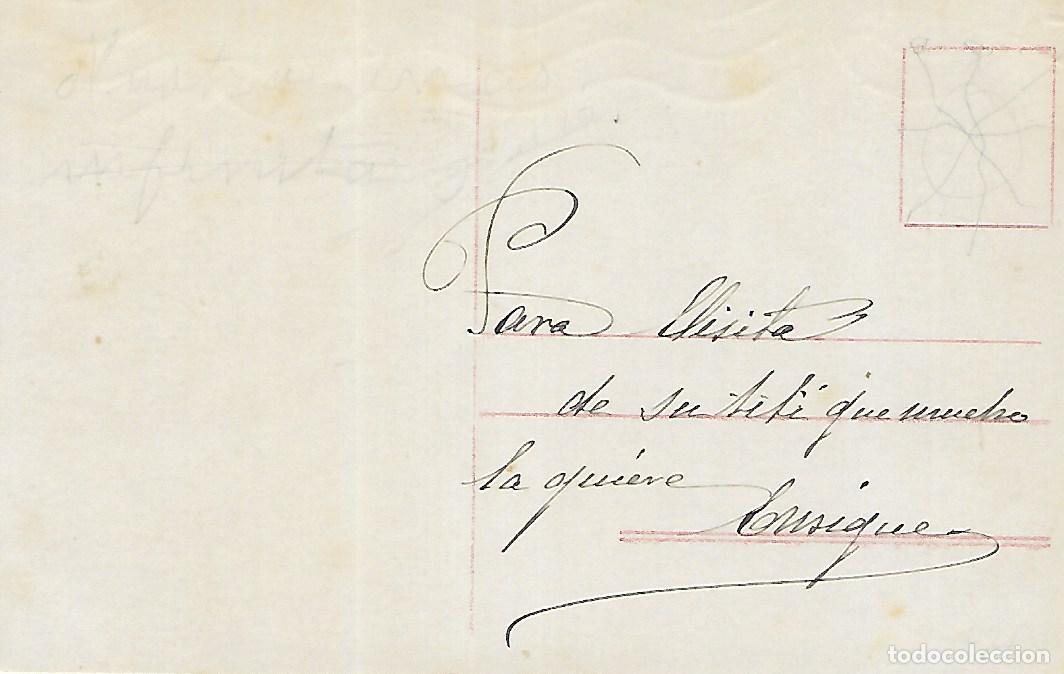 Para Elisita
de su titi que mucho
la quiere
Enrique
todocoleccion